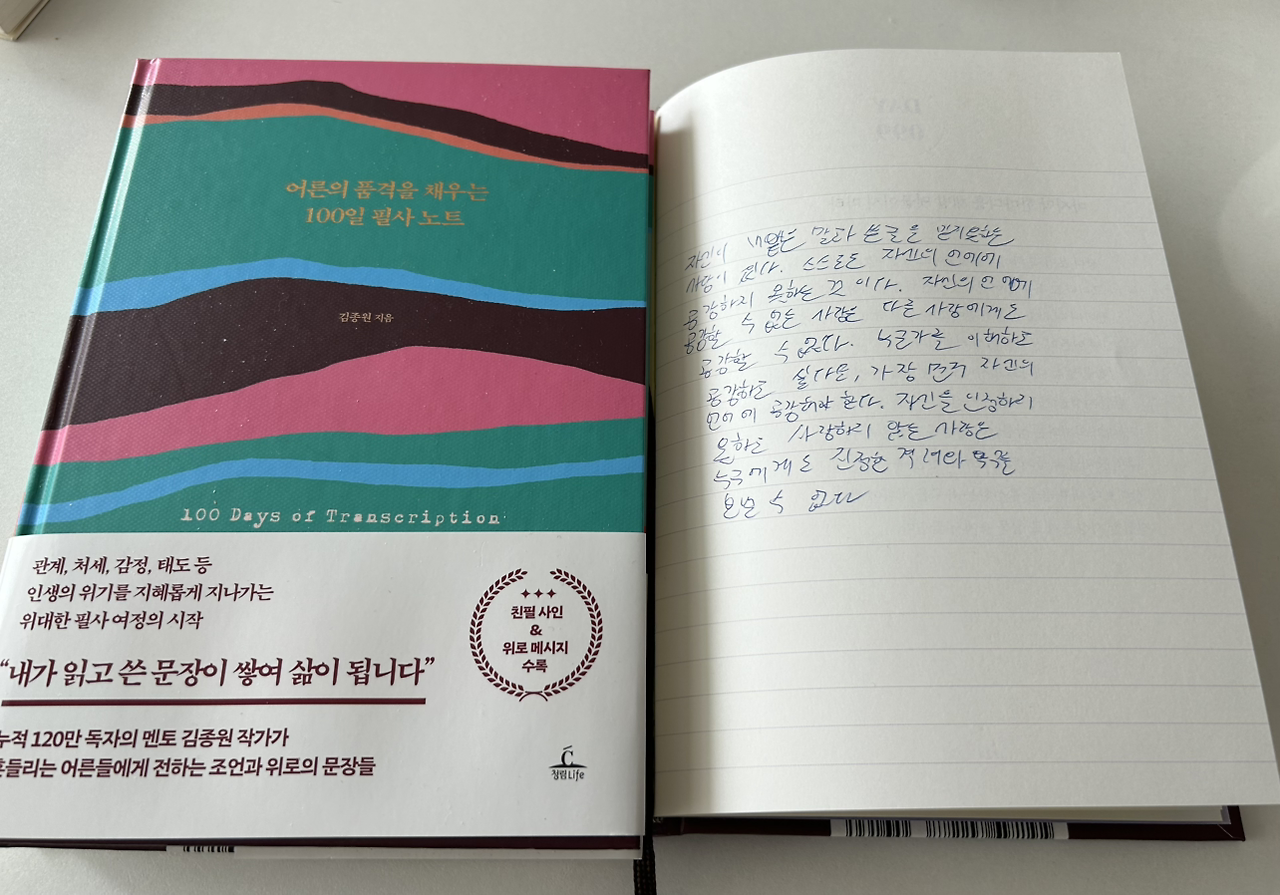 어른의 품격을 채우는
100일 필사 노트
김종원 지음
100 Days of Transcription
관계, 처세, 감정, 태도 등
인생의 위기를 지혜롭게 지나가는
위대한 필사 여정의 시작
“내가 읽고 쓴 문장이 쌓여 삶이 됩니다”
누적 120만 독자의 멘토 김종원 작가가
흔들리는 어른들에게 전하는 조언과 위로의 문장들
친필 사인
&
위로 메시지
수록
청림Life
자신이 내뱉는 말과 쓴글을 믿지못하는
사람이 있다. 스스로도 자신의 언어에
공감하지 못하는 것이다. 자신의 언어에
공감할 수 없는 사람은 다른 사람에게도
공감할 수 없다. 누군가를 이해하고
공감하고 싶다면, 가장 먼저 자신의
언어에 공감해야 한다. 자신을 인정하지
못하고 사랑하지 않는 사람은
누구에게도 진정한 격려와
보낼 수 없다